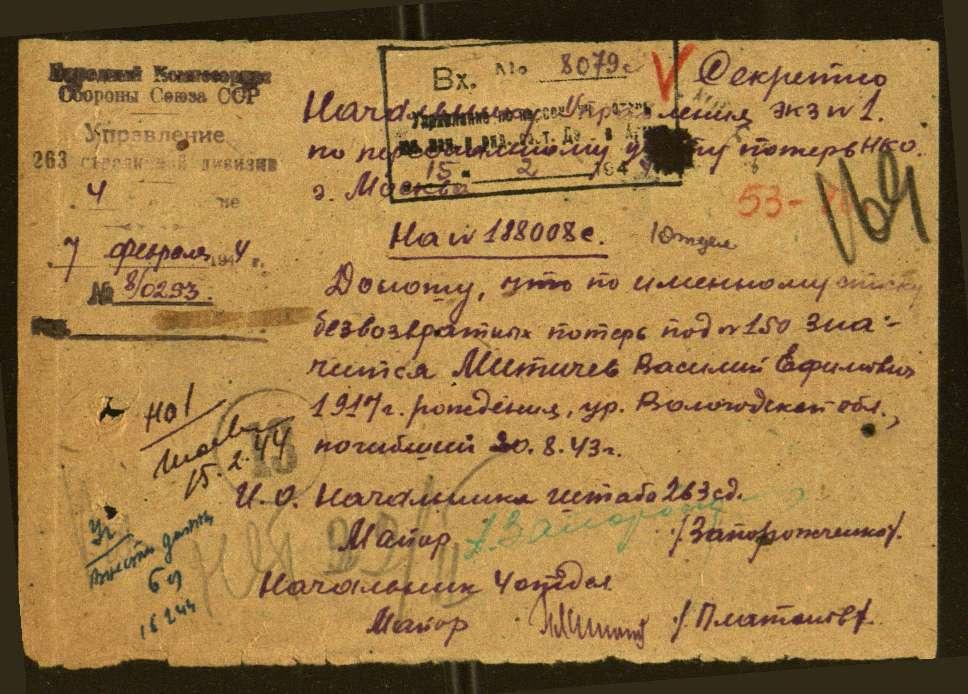 Народный Комиссариат
Обороны Союза ССР
Управление
263 стрелковой дивизии
4
7 февраля 1944 г.
№ 8/0293.
Вх. № 8079с
15 2 194
Секретно
Начальнику Управления экз №1.
по персональному учету потерь НКО.
г. Москва
53-
169
На № 188008с. 1 отдел
Доношу, что по именному списку
безвозвратных потерь под №150 зна-
чится Митичев Василий Ефимович
1917 г. рождения, ур. Вологодской обл.,
погибший 20.8.43 г.
И.О. Начальника штаба 263 сд.
Майор /Запорожченко/.
Начальник 4 отдел
Майор /Платонов/.
но/
15.2.44
13
16 2 44